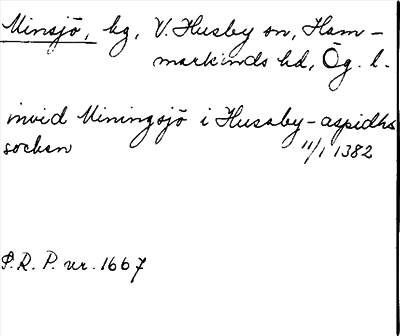 Minsjö, by, V. Husby sn, Ham-
markinds hd, Ög. l.
invid Miningsjö i Husaby-aspidhs
sochen 11/1 1382
S.R.P. nr. 1667